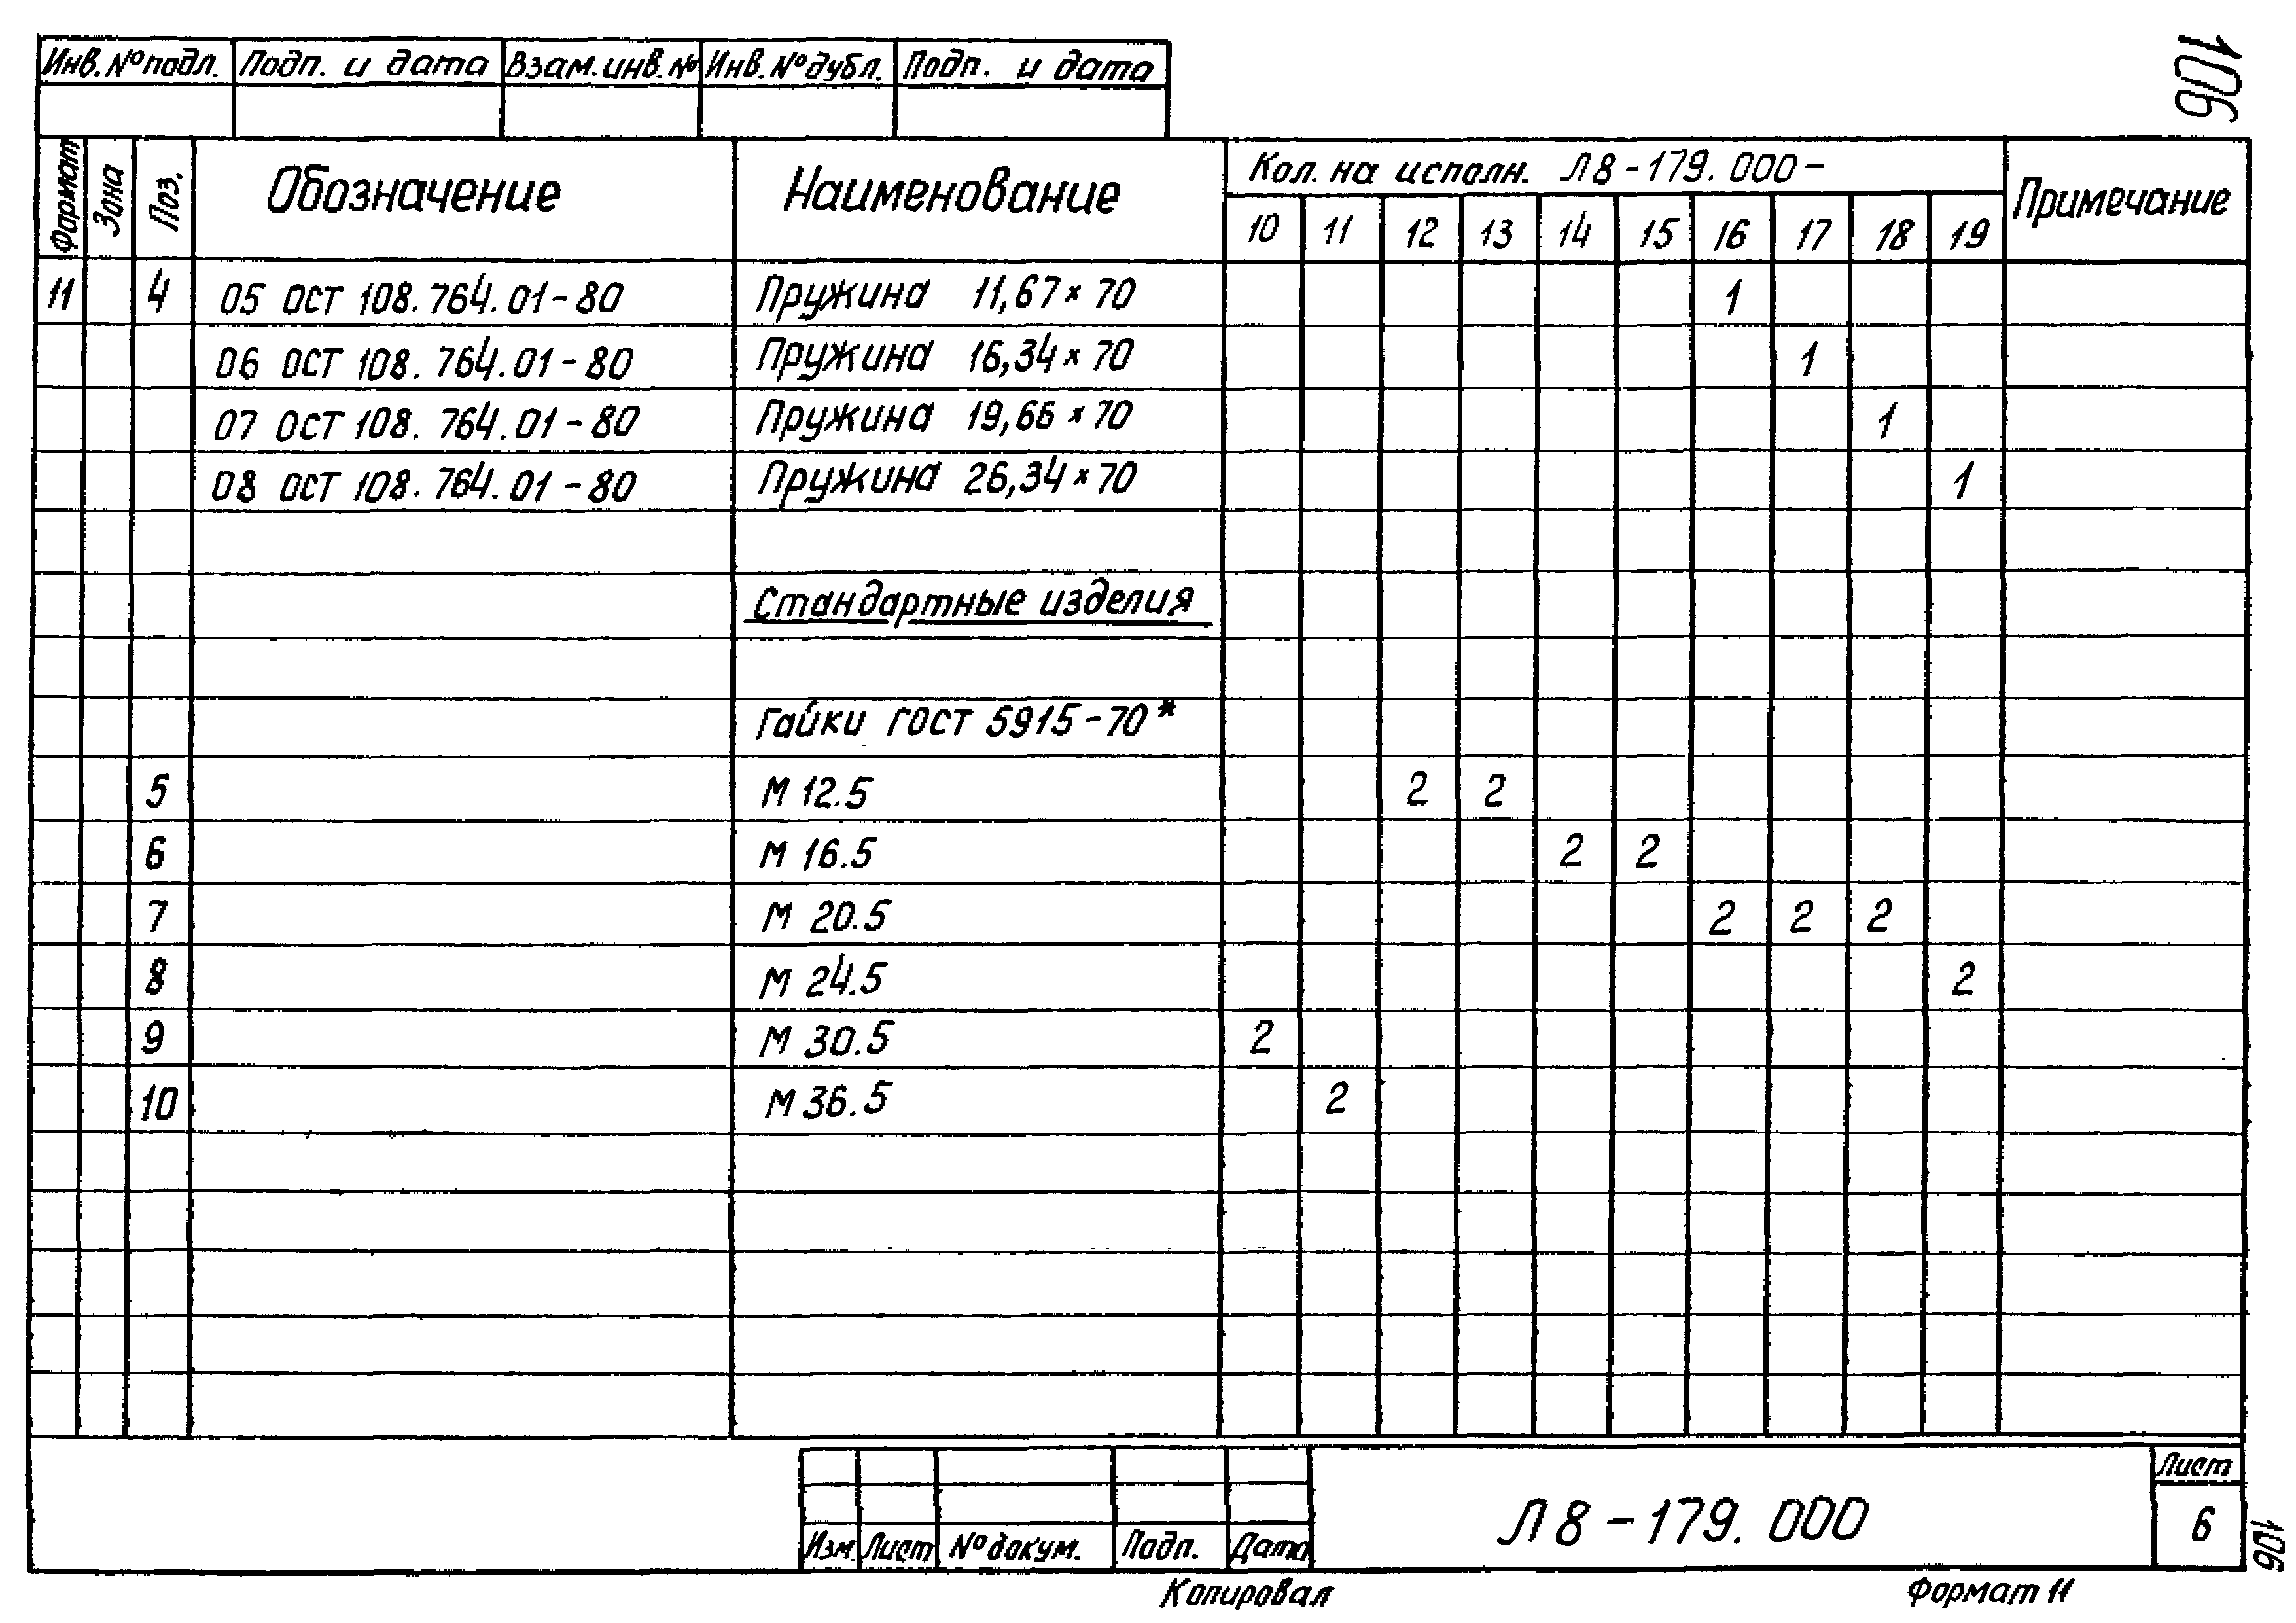 106
Инв. № подл. Подп. и дата Взам. инв. № Инв. № дубл. Подп. и дата
Формат Зона Поз. Обозначение Наименование Кол. на исполн. Л8-179.000- Примечание
10 11 12 13 14 15 16 17 18 19
11 4 05 ОСТ 108.764.01-80 Пружина 11,67×70 1
06 ОСТ 108.764.01-80 Пружина 16,34×70 1
07 ОСТ 108.764.01-80 Пружина 19,66×70 1
08 ОСТ 108.764.01-80 Пружина 26,34×70 1
Стандартные изделия
Гайки ГОСТ 5915-70*
5 М 12.5 2 2
6 М 16.5 2 2
7 М 20.5 2 2 2
8 М 24.5 2
9 М 30.5 2
10 М 36.5 2
Изм. Лист № докум. Подп. Дата Л8-179.000 Лист
6
106
Копировал Формат 11